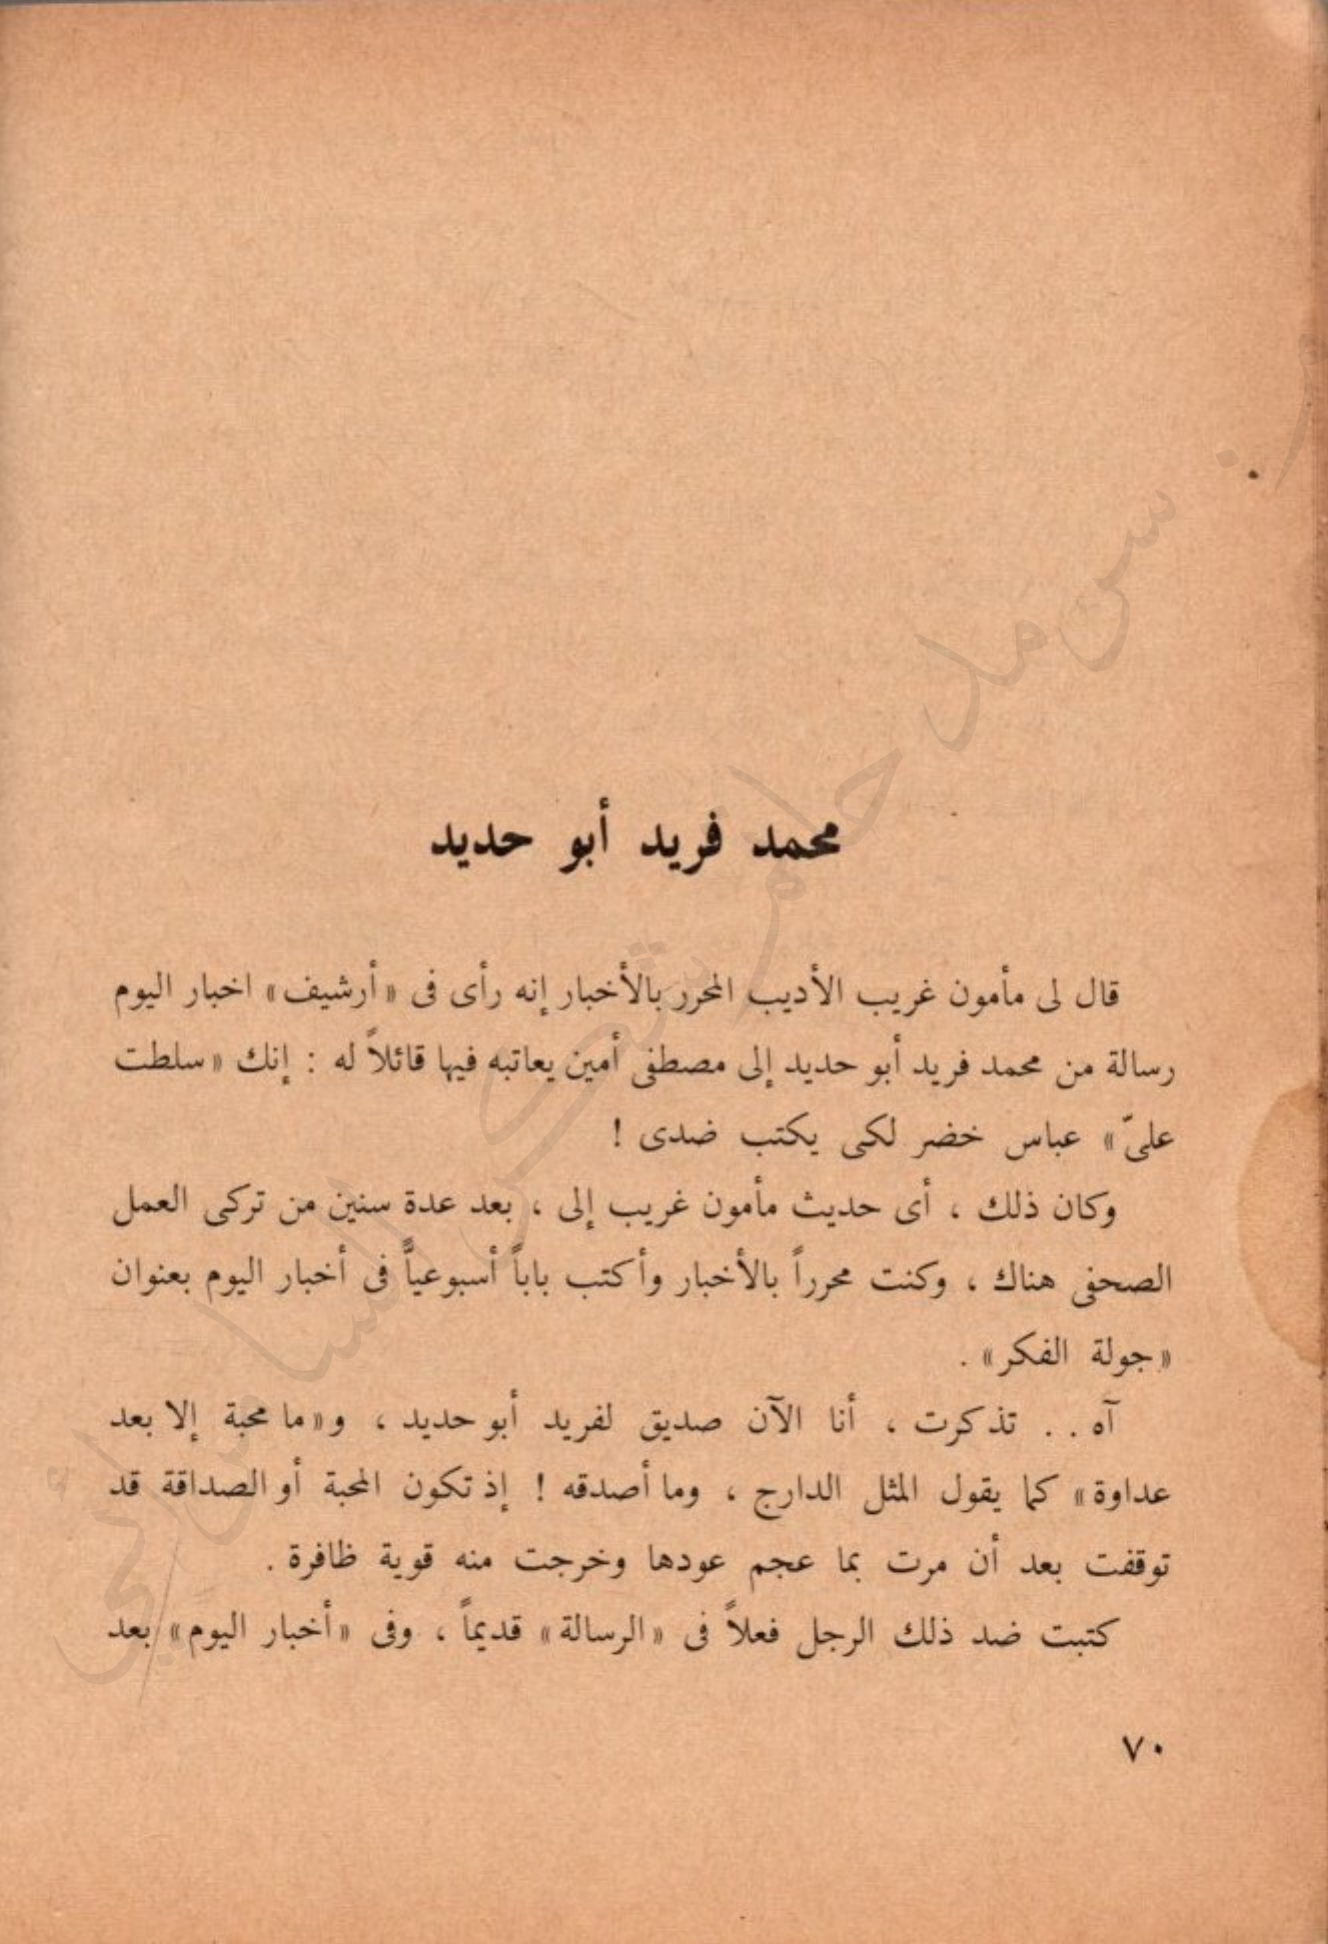 محمد فريد أبو حديد
قال لى مأمون غريب الأديب المحرر بالأخبار إنه رأى فى «أرشيف» اخبار اليوم
رسالة من محمد فريد أبو حديد إلى مصطفى أمين يعاتبه فيها قائلاً له : إنك «سلطت
علىّ» عباس خضر لكى يكتب ضدى !
وكان ذلك ، أى حديث مأمون غريب إلى ، بعد عدة سنين من تركى العمل
الصحفى هناك ، وكنت محرراً بالأخبار وأكتب باباً أسبوعياًّ فى أخبار اليوم بعنوان
«جولة الفكر» .
آه . . تذكرت ، أنا الآن صديق لفريد أبو حديد ، و«ما محبة إلا بعد
عداوة» كما يقول المثل الدارج ، وما أصدقه ! إذ تكون المحبة أو الصداقة قد
توقفت بعد أن مرت بما عجم عودها وخرجت منه قوية ظافرة .
كتبت ضد ذلك الرجل فعلاً فى «الرسالة» قديماً ، وفى «أخبار اليوم» بعد
٧٠